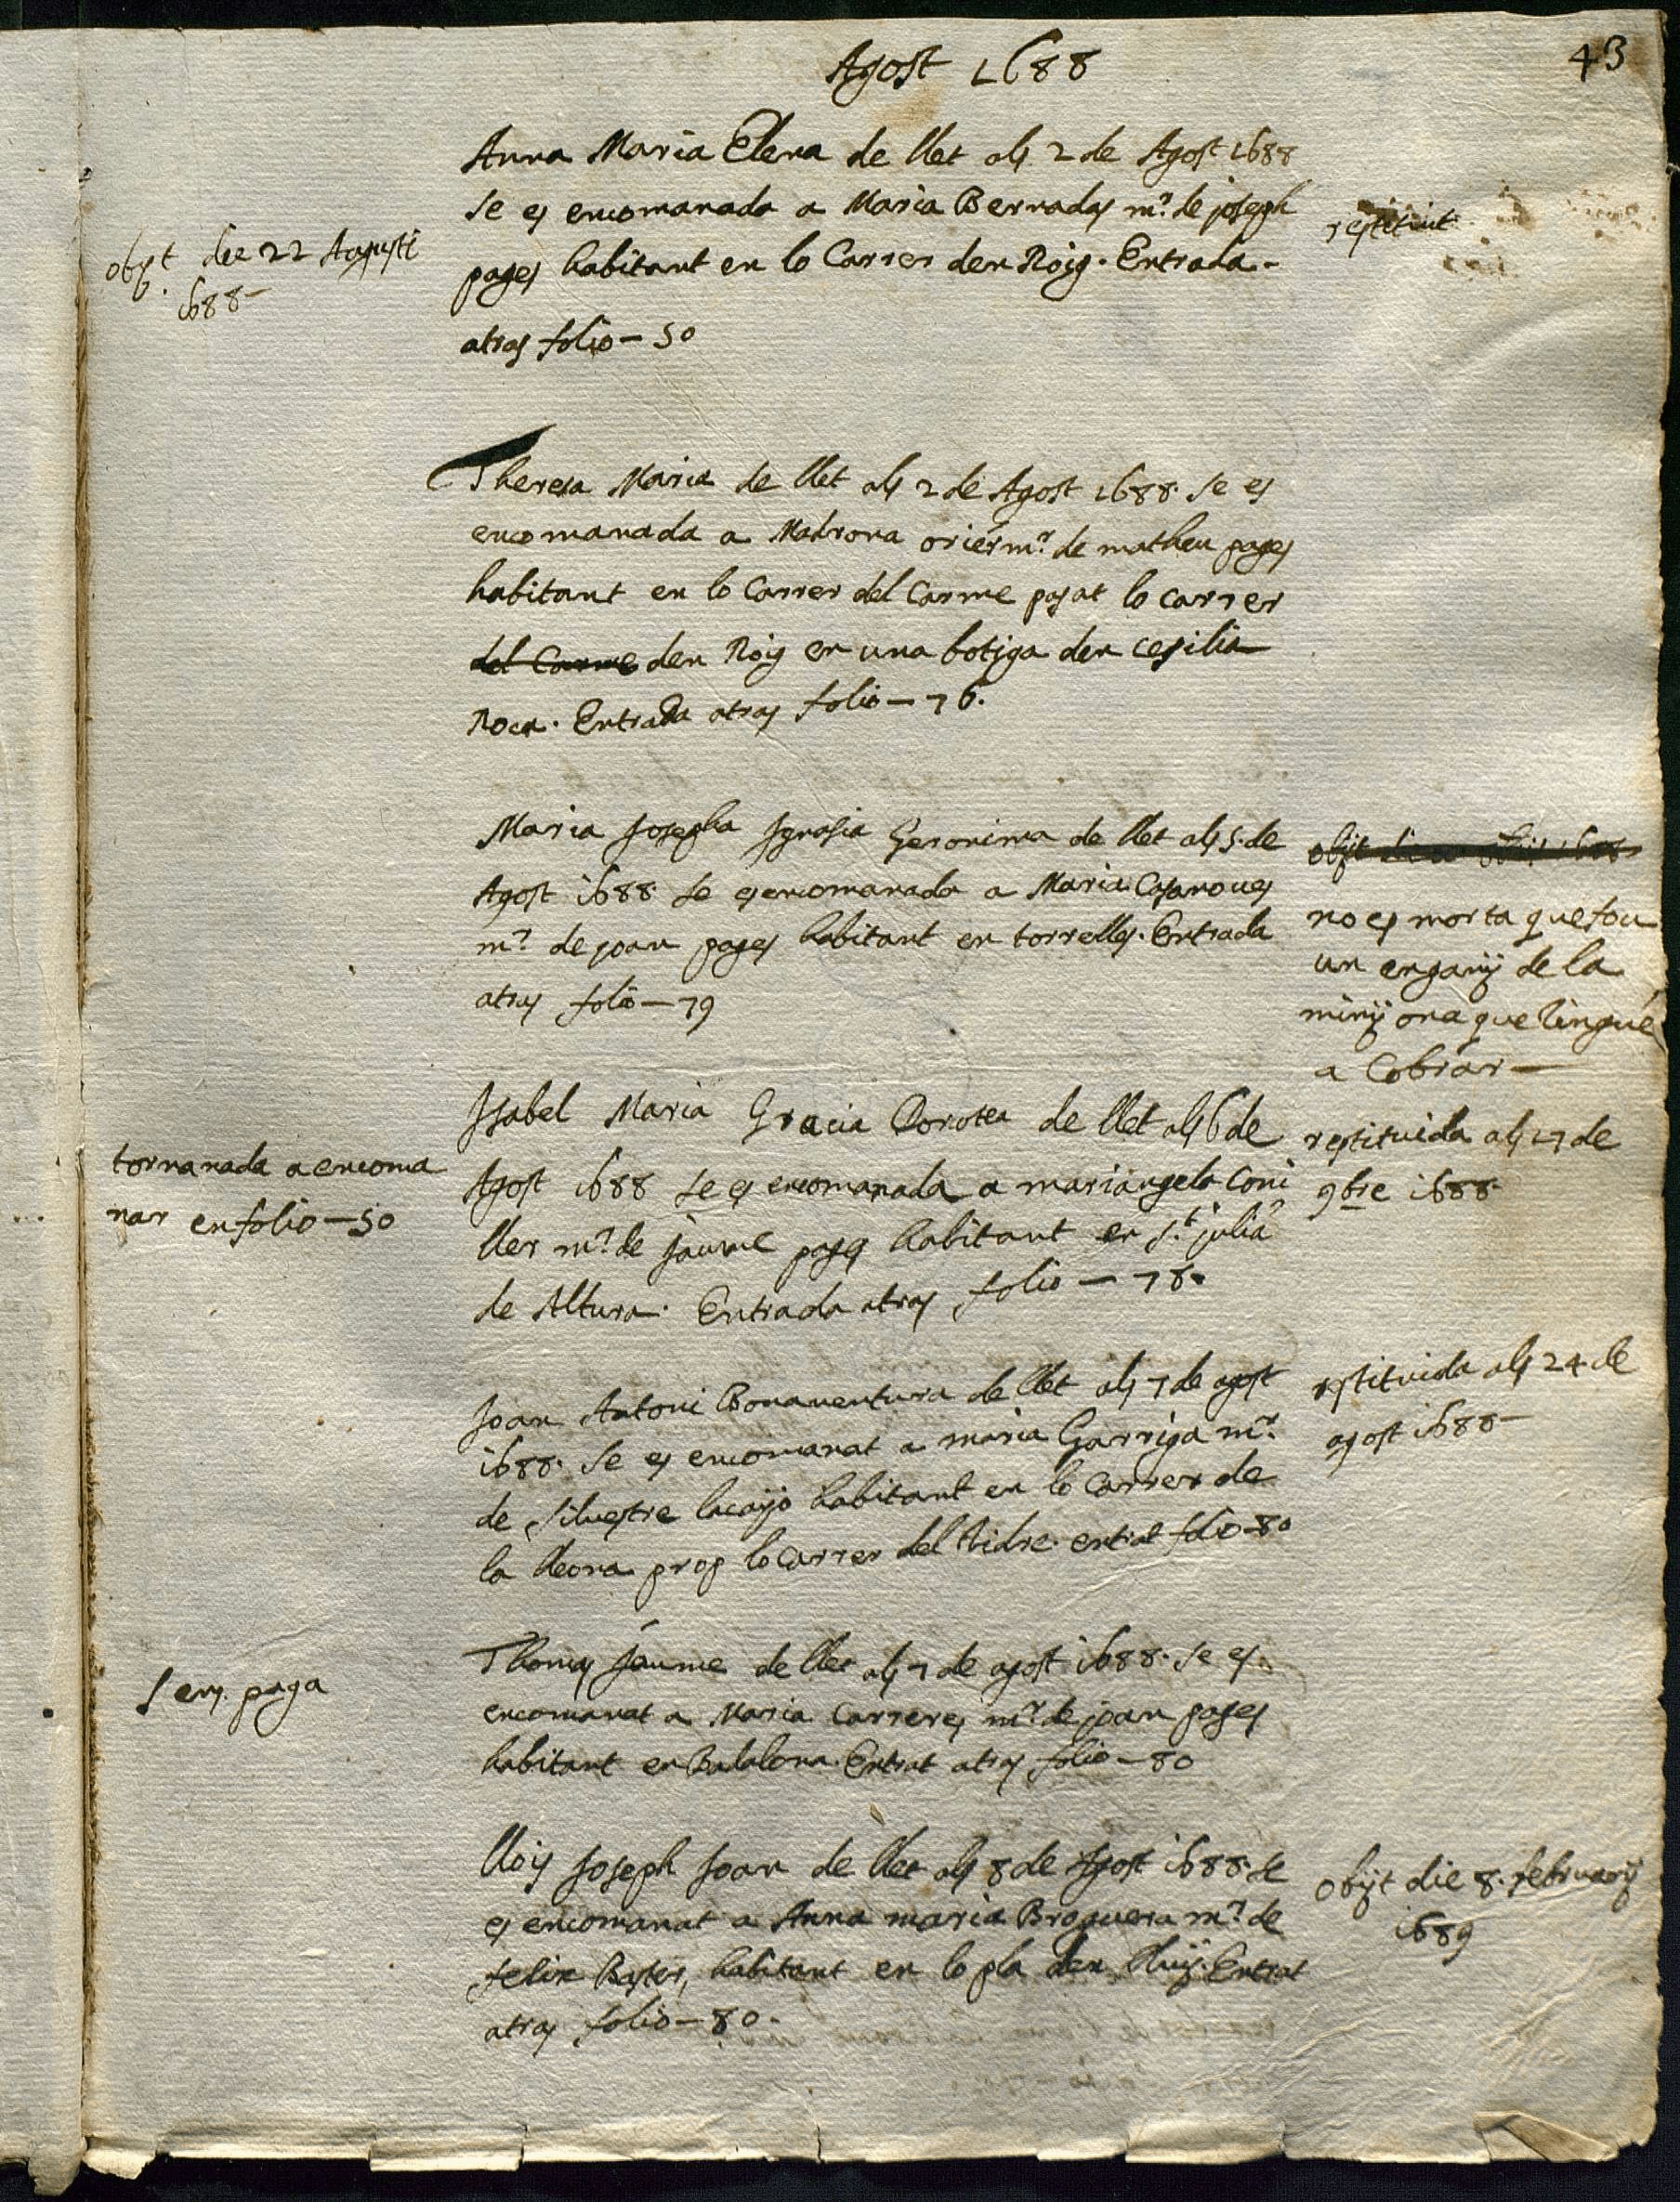 Agost 1688
43
Anna Maria Elena de llet als 2 de Agost 1688
se es encomanada a Maria Bernadas mr. de joseph
pages habitant en lo Carrer den Roig. Entrada
atras folio - 50
obyt die 22 Augusti
1688
restituit
Theresa Maria de llet als 2 de Agost 1688. se es
encomanada a Madrona oriér mr. de matheu pages
habitant en lo Carrer del Carme pasat lo carrer
del Carme den Roig en una botiga den cesilia
Roca. Entrada atras folio - 76.
Maria Josepha Ignasia Geronima de llet als 5 de
Agost 1688 se es encomanada a Maria Casanoves
mr. de joan pages habitant en torrelles. Entrada
atras folio - 79
obyt die
no es morta que fou
un engany de la
minyona que vingué
a Cobrar
Isabel Maria Gracia Dorotea de llet als 6 de
Agost 1688 se es encomanada a mariangela Coni
ller mr. de jaume pages habitant en St. julia
de Altura. Entrada atras folio - 78.
tornanada a encoma
nar en folio - 50
restituida als 17 de
9bre 1688
Joan Antoni Bonaventura de llet als 7 de agost
1688. se es encomanat a maria Garriga mr.
de silvestre lacayo habitant en lo Carrer de
la lleona prop lo Carrer del Vidre. entrat folio 80
restituida als 24 de
agost 1688
Thomas jaume de llet als 7 de agost 1688. se es
encomanat a Maria Carreres mr. de joan pages
habitant en Badalona. Entrat atras folio - 80
sens paga
llois Joseph Joan de llet als 8 de Agost 1688. se
es encomanat a Anna maria Broguera mr. de
felix Baster, habitant en lo pla den lluy. Entrat
atras folio - 80.
obyt die 8. februarij
1689